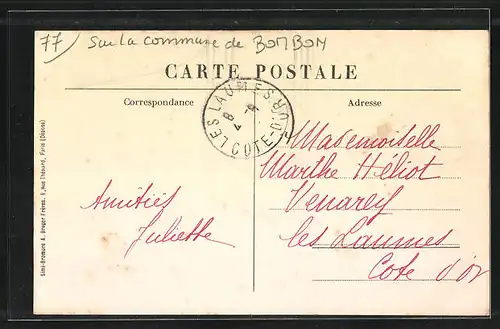 77 Sur la commune de BOMBON
CARTE POSTALE
Correspondance
Adresse
LES LAUMES
COTE-D'OR
8
4
Mademoiselle
Marthe Héliot
Venarey
les Laumes
Cote d'or
Amitiés
Juliette
Simi-Bromure A. Breger Frères, 9, Rue Thénard, Paris (Déposé)